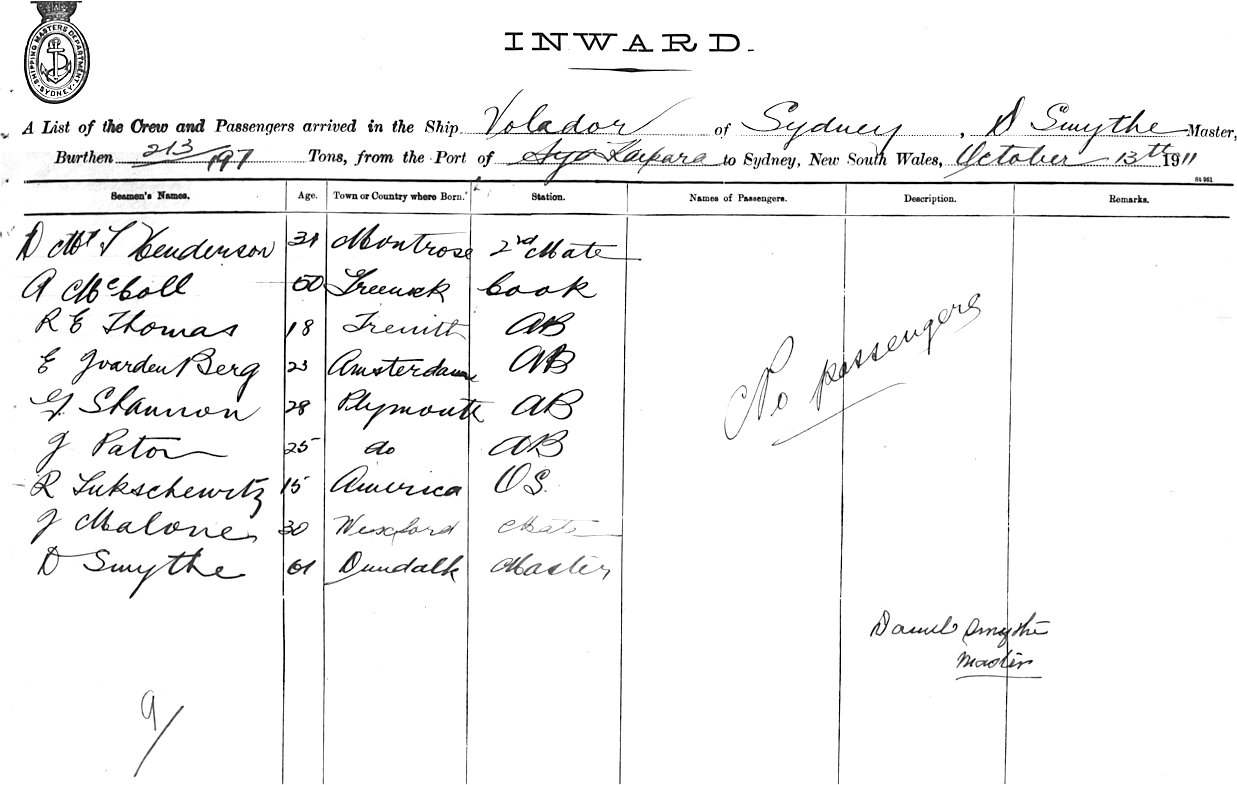 SHIPPING MASTERS DEPARTMENT SYDNEY
INWARD.
A List of the Crew and Passengers arrived in the Ship Volador of Sydney, D Smythe Master,
Burthen 213/197 Tons, from the Port of Kaipara to Sydney, New South Wales, October 13th 1911
St 961
Seamen's Names. Age. Town or Country where Born. Station. Names of Passengers. Description. Remarks.
D Henderson 31 Montrose 2nd Mate
A McColl 50 Greenock Cook
R E Thomas 18 AB
E Berg 23 Amsterdam AB
G Shannon 28 Plymouth AB
J Paton 25 do AB
R Lukschewitz 15 America OS.
J Malone 30 Wexford Mate
D Smythe 61 Dundalk Master
No passengers
Daniel Smythe
Master
9/